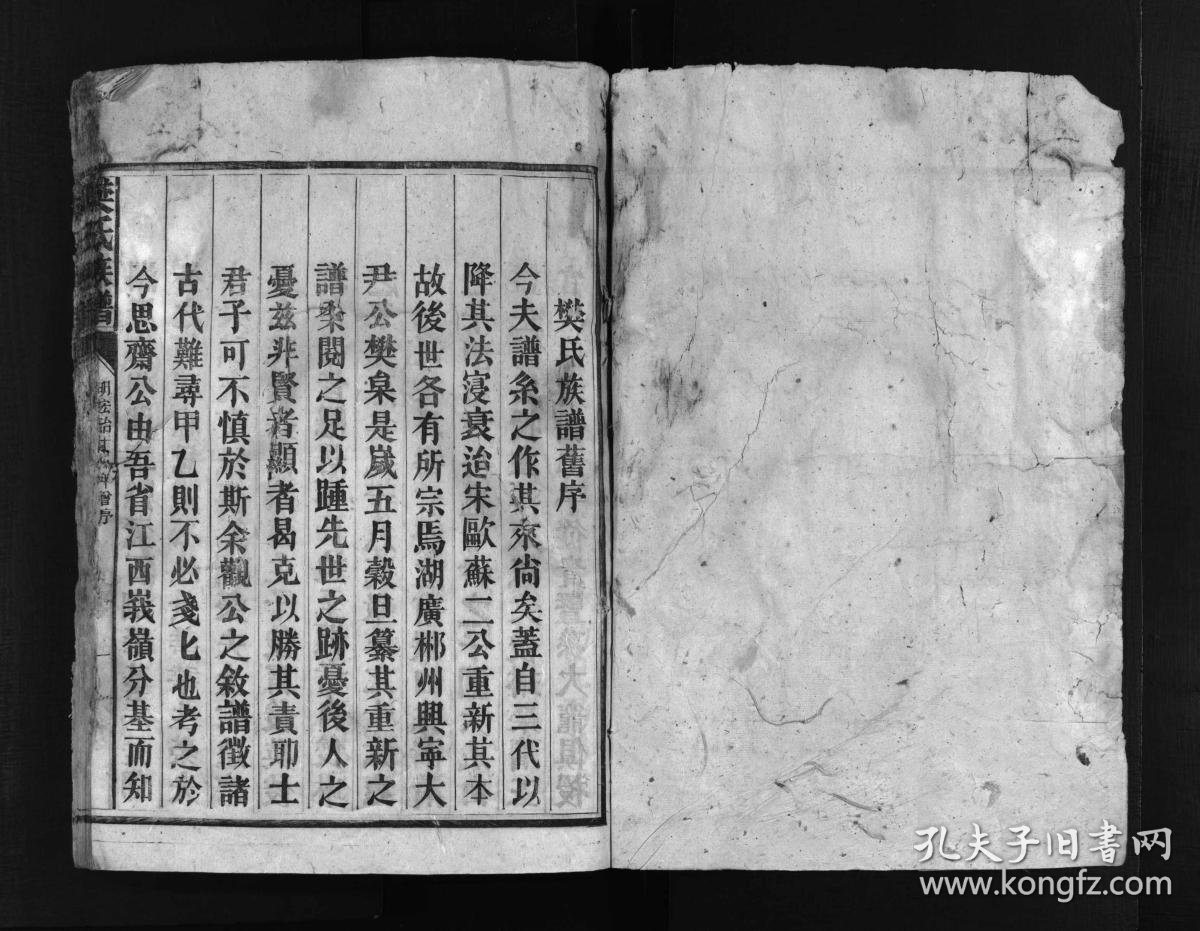 樊氏族譜舊序
今夫譜系之作其來尙矣蓋自三代以
降其法寖衰迨宋歐蘇二公重新其本
故後世各有所宗焉湖廣郴州興寧大
尹公樊泉是歲五月穀旦纂其重新之
譜桑閱之足以踵先世之跡憂後人之
憂兹非賢者顯者曷克以勝其責耶士
君子可不慎於斯余觀公之敘譜徵諸
古代難尋甲乙則不必戔匕也考之於
今思齋公由吾省江西峩嶺分基而知
樊氏族譜
明 序
孔夫子旧书网
www.kongfz.com